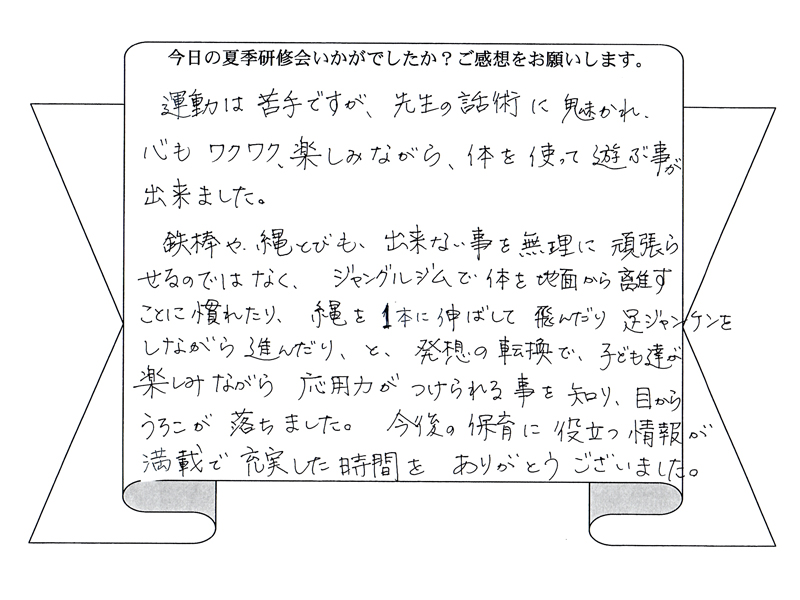 今日の夏季研修会いかがでしたか？ご感想をお願いします。
運動は苦手ですが、先生の話術に魅かれ、
心もワクワク、楽しみながら、体を使って遊ぶ事が
出来ました。
鉄棒や縄とびも、出来ない事を無理に頑張ら
せるのではなく、ジャングルジムで体を地面から離す
ことに慣れたり、縄を1本に伸ばして飛んだり足ジャンケンを
しながら進んだり、と、発想の転換で、子ども達が
楽しみながら応用力がつけられる事を知り、目から
うろこが落ちました。今後の保育に役立つ情報が
満載で充実した時間をありがとうございました。